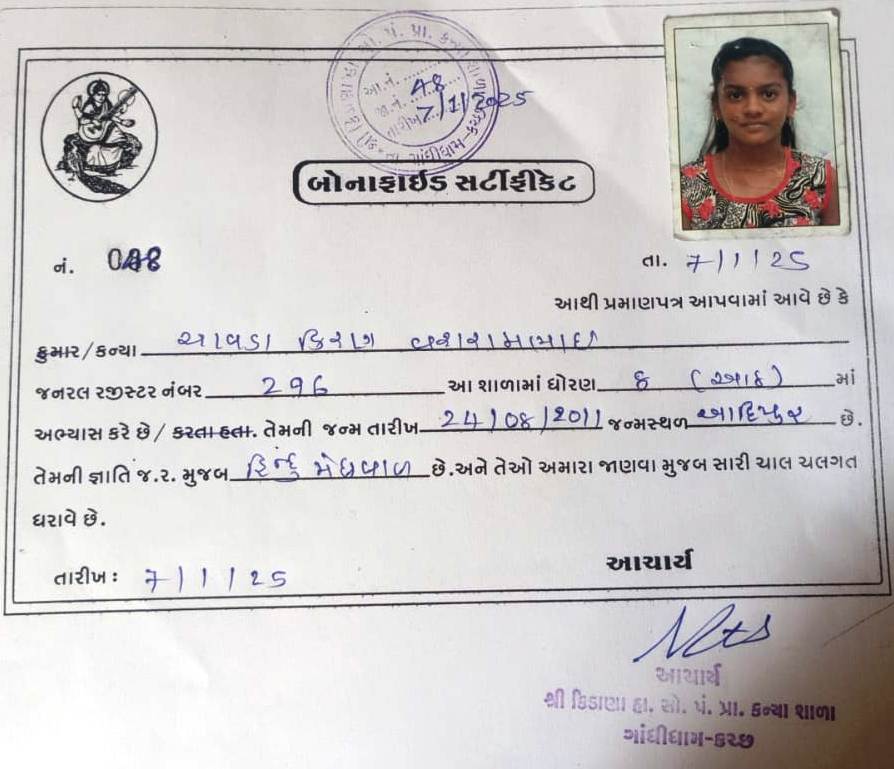 આ.નં.
જા.નં. 48
તારીખ 7/1/2025
ગાંધીધામ-કચ્છ
બોનાફાઈડ સર્ટીફીકેટ
નં. 048
તા. 7/1/25
આથી પ્રમાણપત્ર આપવામાં આવે છે કે
કુમાર/કન્યા ચાવડા કિરણ વશરામભાઈ
જનરલ રજીસ્ટર નંબર 296 આ શાળામાં ધોરણ ૮ (આઠ) માં
અભ્યાસ કરે છે / કરતા હતા. તેમની જન્મ તારીખ 24/08/2011 જન્મસ્થળ આદિપુર છે.
તેમની જ્ઞાતિ જ.ર. મુજબ હિન્દુ મેઘવાળ છે.અને તેઓ અમારા જાણવા મુજબ સારી ચાલ ચલગત
ધરાવે છે.
તારીખ: 7/1/25
આચાર્ય
આચાર્ય
શ્રી કિડાણા હા. સો. પં. પ્રા. કન્યા શાળા
ગાંધીધામ-કચ્છ